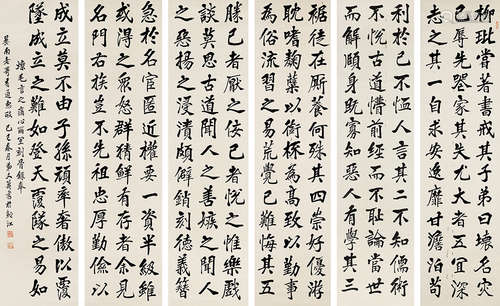 柳玭嘗著書戒其子弟壞名災
己辱先喪家其失尤大者五宜深
志之其一自求安逸靡甘澹泊苟
利於己不恤人言其二不知儒術
不悅古道懵前經而不恥論當世
而解頤身既寡知惡人有學其三
裾徒在廝養何殊其四崇好優游
耽嗜麴蘗以銜杯為高致以勤事
為俗流習之易荒覺已難悔其五
勝己者厭之佞己者悅之惟樂戲
談莫思古道聞人之善嫉之聞人
之惡揚之浸漬頗僻銷刻德義簪
急於名宦匿近權要一資半級雖
或得之衆怒群猜鮮有存者余見
名門右族豈不先祖忠厚勤儉以
成立莫不由子孫頑率奢傲以覆
墜成立之難如登天覆墜之易如
燎毛言之痛心爾宜刻骨錄奉